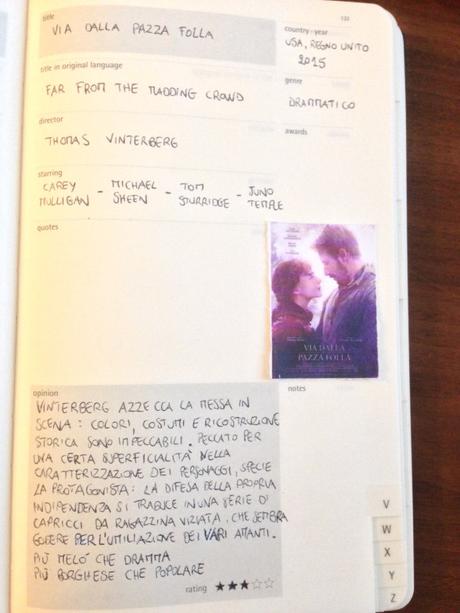 title
132
VIA DALLA PAZZA FOLLA
country - year
USA, REGNO UNITO
2015
title in original language
genre
FAR FROM THE MADDING CROWD
DRAMMATICO
director
awards
THOMAS VINTERBERG
starring
CAREY MULLIGAN - MICHAEL SHEEN - TOM STURRIDGE - JUNO TEMPLE
quotes
VIA DALLA
PAZZA FOLLA
opinion
notes
VINTERBERG AZZECCA LA MESSA IN
SCENA: COLORI, COSTUMI E RICOSTRUZIONE
STORICA SONO IMPECCABILI. PECCATO PER
UNA CERTA SUPERFICIALITÀ NELLA
CARATTERIZZAZIONE DEI PERSONAGGI, SPECIE
LA PROTAGONISTA: LA DIFESA DELLA PROPRIA
INDIPENDENZA SI TRADUCE IN UNA SERIE DI
CAPRICCI DA RAGAZZINA VIZIATA, CHE SEMBRA
GODERE PER L'UMILIAZIONE DEI VARI AMANTI.
PIÙ MELÒ CHE DRAMMA
PIÙ BORGHESE CHE POPOLARE
rating ★★★☆☆
V
W
X
Y
Z